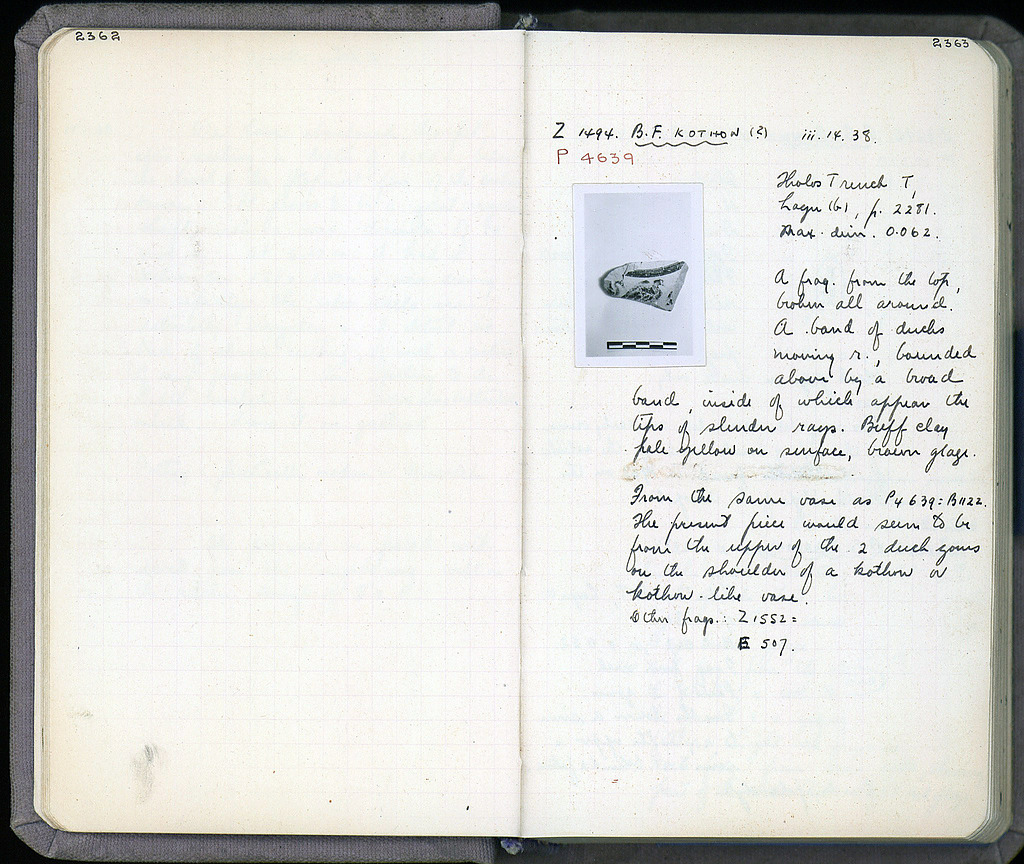 2362
2363
Z 1494. B.F. KOTHON (?) iii.14.38.
P 4639
Tholos Trench T,
Layer (b), p. 2281.
Max. dim. 0.062.
A frag. from the top,
broken all around.
A band of ducks
moving r., bounded
above by a broad
band, inside of which appear the
tips of slender rays. Buff clay
pale yellow on surface, brown glaze.
From the same vase as P4639: B1122.
The present piece would seem to be
from the upper of the 2 duck zones
on the shoulder of a kothon or
kothon-like vase.
Other frags.: Z 1552 =
E 507.